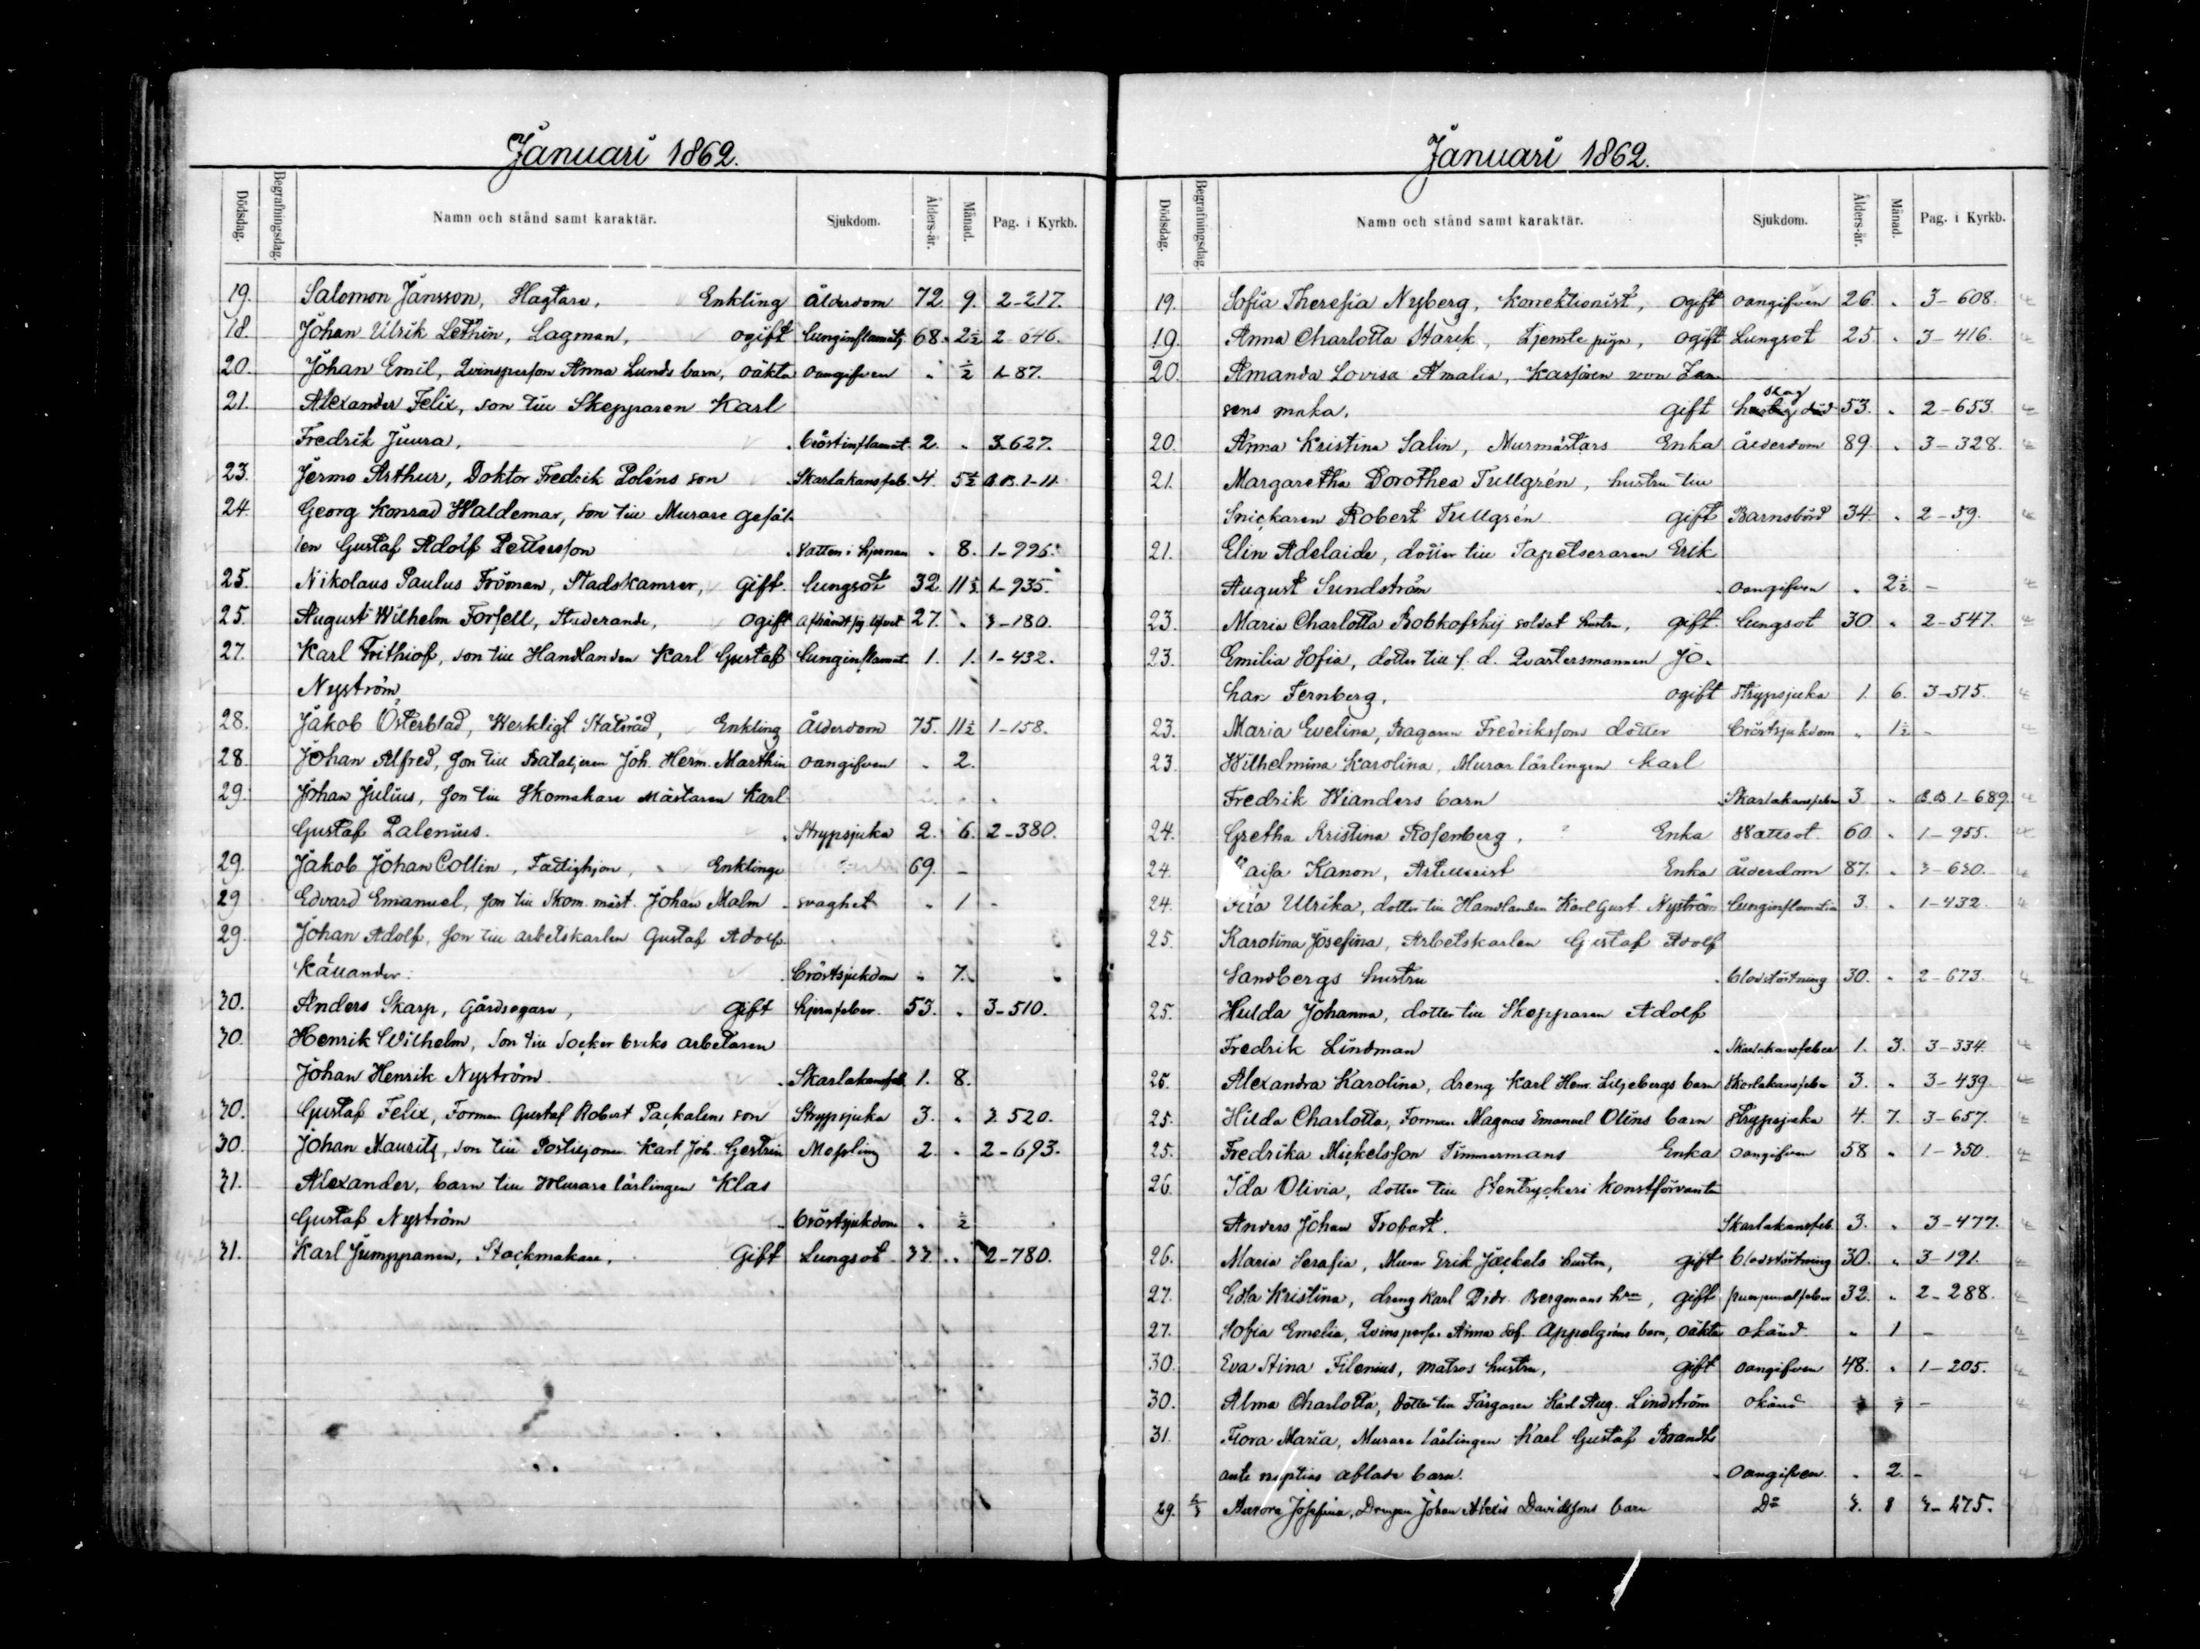 Januari 1862.
Dödsdag. Begrafningsdag. Namn och stånd samt karaktär. Sjukdom. Ålders-år. Månad. Pag. i Kyrkb.
19. Salomon Jansson, Enkling Ålderdom 72. 9. 2-217.
18. Johan Ulrik Lethin, Lagman, ogift Lunginflamatj 68. 2½ 2 646.
20. Johan Emil, Qvinsperson Anna Lunds barn, oäkta oangifven „ ½ 1-87.
21. Alexander Felix, son till Skepparen Karl
Fredrik Juura, Bröstinflamat. 2. „ 3-627.
23. Jermo Arthur, Doktor Fredrik Poléns son Skarlakansfeb. 4. 5½ B.B. 1-11.
24. Georg Konrad Waldemar, son till Murare gesäl-
len Gustaf Adolf Pettersson Vatten i hjernan „ 8. 1-226.
25. Nikolaus Paulus Fröman, Stadskamrer, gift. Lungsot 32. 11½ 1-935.
25. August Wilhelm Forsell, Studerande, ogift Afhändt sig lifvet 27. „ 3-180.
27. Karl Frithiof, son till Handlanden Karl Gustaf Lunginflamat. 1. 1. 1-432.
Nyström
28. Jakob Österblad, Werkligt Statsråd, Enkling Ålderdom 75. 11½ 1-158.
28. Johan Alfred, Son till Joh. Herm. Marthin oangifven „ 2.
29. Johan Julius, Son till Skomakare Mästaren Karl
Gustaf Palenius. Strypsjuka 2. 6. 2-380.
29. Jakob Johan Collin, Fattighjon, Enkling 69. –
29 Edvard Emanuel, Son till Skom. mäst. Johan Malm svaghet „ 1 -
29. Johan Adolf, Son till arbetskarlen Gustaf Adolf
Källander. Bröstsjukdom „ 7.
30. Anders Skarp, Gårdsegare, gift hjernfeber. 53. „ 3-510.
30. Henrik Wilhelm, Son till Socker bruks arbetaren
Johan Henrik Nyström Skarlakansfeb. 1. 8.
30. Gustaf Felix, Forman Gustaf Robert Packalens son Strypsjuka 3. „ 3-520.
30. Johan Mauritz, Son till Postiljonen Karl Joh. Gestrin Messling 2. „ 2-693.
31. Alexander, barn till Murare lärlingen Klas
Gustaf Nyström Bröstsjukdom „ ½
31. Karl Jumppanen, Stockmakare, Gift Lungsot 33. „ 2-780.
Januari 1862.
Dödsdag. Begrafningsdag Namn och stånd samt karaktär. Sjukdom. Ålders-år. Månad. Pag. i Kyrkb.
19. Sofia Theresia Nyberg, Korrektionist, ogift oangifven 26. „ 3-608.
19. Anna Charlotta Starck, Tjenste piga, ogift Lungsot 25. „ 3-416.
20. Amanda Lovisa Amalia, Kassören von Zan
sens maka, gift slag död 53. „ 2-653
20. Anna Kristina Salin, Murmästars Enka Ålderdom 89. „ 3-328.
21. Margaretha Dorothea Tullgrén, hustru till
Snickaren Robert Tullgrén gift Barnsbörd 34. „ 2-59.
21. Elin Adelaide, dotter till Tapetseraren Erik
August Sundström oangifven „ 2½ –
23. Maria Charlotta Bobkofskij soldat hustru, gift. Lungsot 30. „ 2-547.
23. Emilia Sofia, dotter till f. d. Qvartersmannen Jo-
han Fernberg, ogift Strypsjuka 1. 6. 3-515.
23. Maria Evelina, Bagaren Fredrikssons dotter Bröstsjukdom „ 1½ –
23. Wilhelmina Karolina, Murar lärlingen Karl
Fredrik Wianders barn Skarlakansfeber 3 „ B.B 1-689.
24. Gretha Kristina Rosenberg, Enka Wattsot. 60. „ 1-955.
24. aisa Kanon, Artillerist Enka ålderdom 87. „ 3-630.
24. Ulrika, dotter till Handlanden Karl Gust. Nyström Lunginflamation 3. „ 1-432.
25. Karolina Josefina, Arbetskarlen Gustaf Adolf
Sandbergs hustru Blodstörtning 30. „ 2-673.
25. Hulda Johanna, dotter till Skepparen Adolf
Fredrik Lindman Skarlakansfeber 1. 3. 3-334.
25. Alexandra Karolina, dreng Karl Henr. Liljebergs barn Skarlakansfeber 3. „ 3-439.
25. Hilda Charlotta, Forman Magnus Emanuel Olins barn Strypsjuka 4. 7. 3-657.
25. Fredrika Mickelsson Timmermans Enka oangifven 58 „ 1-350
26. Ida Olivia, dotter till Stentryckeri konstförvanten
Anders Johan Frobert. Skarlakansfeb. 3. „ 3-477.
26. Maria Serafia, Murar Erik Jäckels hustru, gift Blodstörtning 30. „ 3-191.
27. Edla Kristina, dreng Karl Didr. Bergmans hru, gift puerperalfeber 32. „ 2-288.
27. Sofia Emelia, Qvinspers. Anna Sof. Appelgréns barn, oäkta okänd „ 1 –
30. Eva Stina Filenius, matros hustru, gift oangifven 48. „ 1-205.
30. Alma Charlotta, dotter till Färgaren Karl Aug. Lindström okänd –
31. Flora Maria, Murare lärlingen Karl Gustaf Brandts
ante nuptias aflade barn. oangifven. „ 2. –
29. Aurora Josefina, Drengen Johan Alexis Davidssons barn Do 3. 8 3-275.